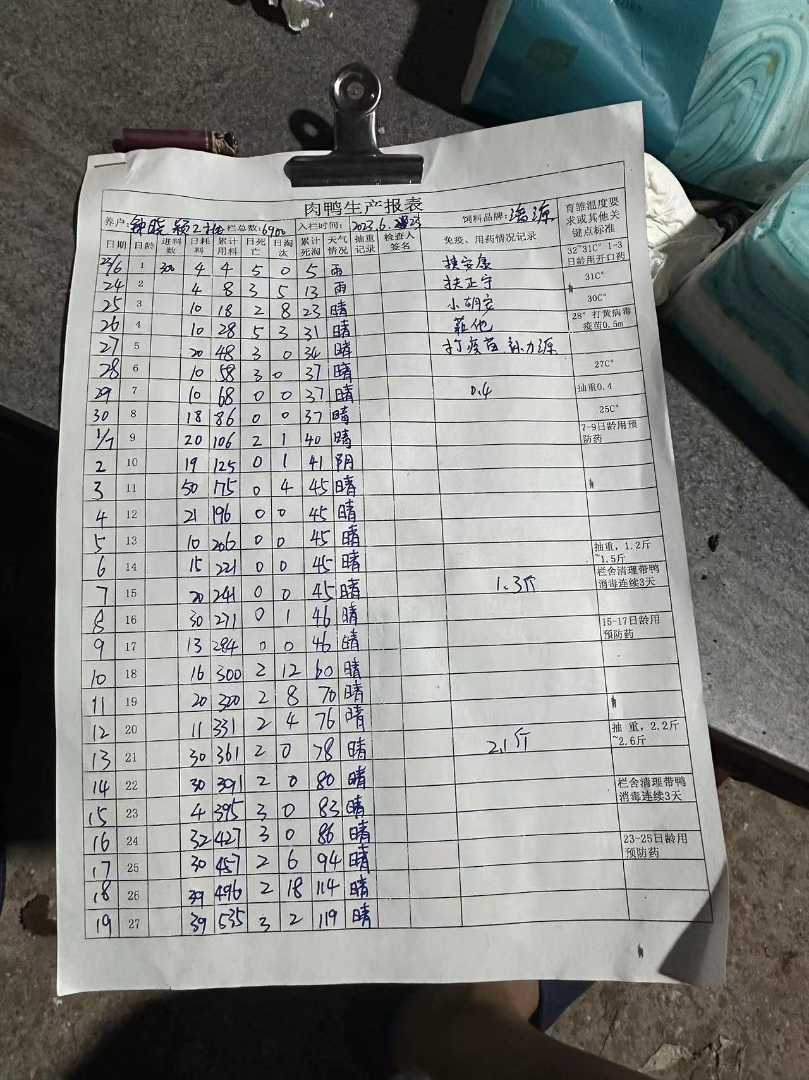 肉鸭生产报表
养户: 钟晓颖2批 栏总数: 6900 入栏时间: 2023.6.23 饲料品牌: 育雏温度要求或其他关键点标准
日期 日龄 进料数 日耗料 累计用料 日死亡 日淘汰 累计死淘 天气情况 抽重记录 检查人签名 免疫、用药情况记录
23/6 1 300 4 4 5 0 5 雨 扶安康 32~31C° 1-3日龄用开口药
24 2 4 8 3 5 13 雨 扶正宁 31C°
25 3 10 18 2 8 23 晴 30C°
26 4 10 28 5 3 31 晴 28° 打黄病毒疫苗0.5m
27 5 20 48 3 0 34 晴 打疫苗
28 6 10 58 3 0 37 晴 27C°
29 7 10 68 0 0 37 晴 0.4 抽重0.4
30 8 18 86 0 0 37 晴 25C°
1/7 9 20 106 2 1 40 晴 7-9日龄用预防药
2 10 19 125 0 1 41 阴
3 11 50 175 0 4 45 晴
4 12 21 196 0 0 45 晴
5 13 10 206 0 0 45 晴
6 14 15 221 0 0 45 晴 抽重, 1.2斤~1.5斤
7 15 20 241 0 0 45 晴 1.3斤 栏舍清理带鸭消毒连续3天
8 16 30 271 0 1 46 晴
9 17 13 284 0 0 46 晴 15-17日龄用预防药
10 18 16 300 2 12 60 晴
11 19 20 320 2 8 70 晴
12 20 11 331 2 4 76 晴
13 21 30 361 2 0 78 晴 2.1斤 抽 重, 2.2斤~2.6斤
14 22 30 391 2 0 80 晴
15 23 4 395 3 0 83 晴 栏舍清理带鸭消毒连续3天
16 24 32 427 3 0 86 晴
17 25 30 457 2 6 94 晴 23-25日龄用预防药
18 26 39 496 2 18 114 晴
19 27 39 535 3 2 119 晴